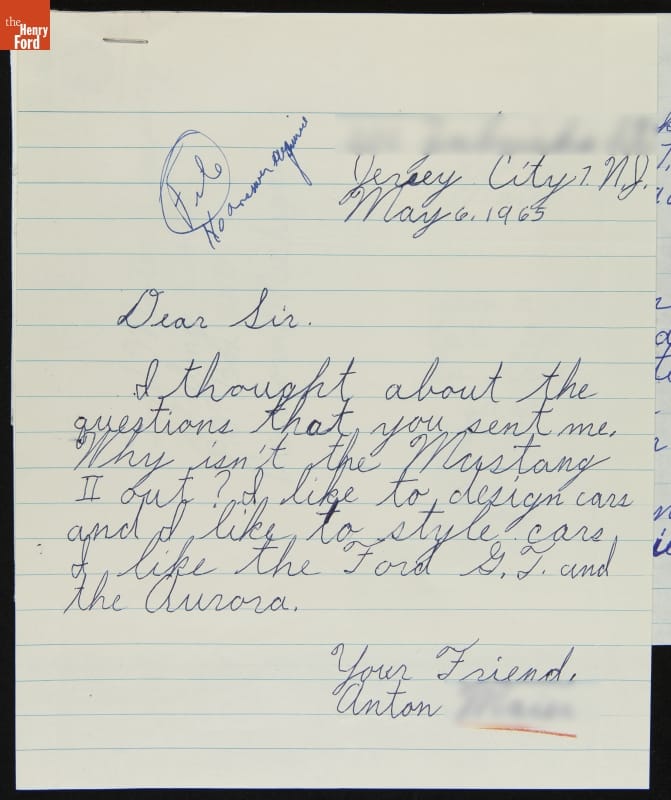 the
Henry
Ford
File
No answer required
Jersey City 7. N.J.
May 6. 1965
Dear Sir.
I thought about the
questions that you sent me.
Why isn't the Mustang
II out? I like to design cars
and I like to style cars.
I like the Ford G.T. and
the Aurora.
Your Friend.
Anton